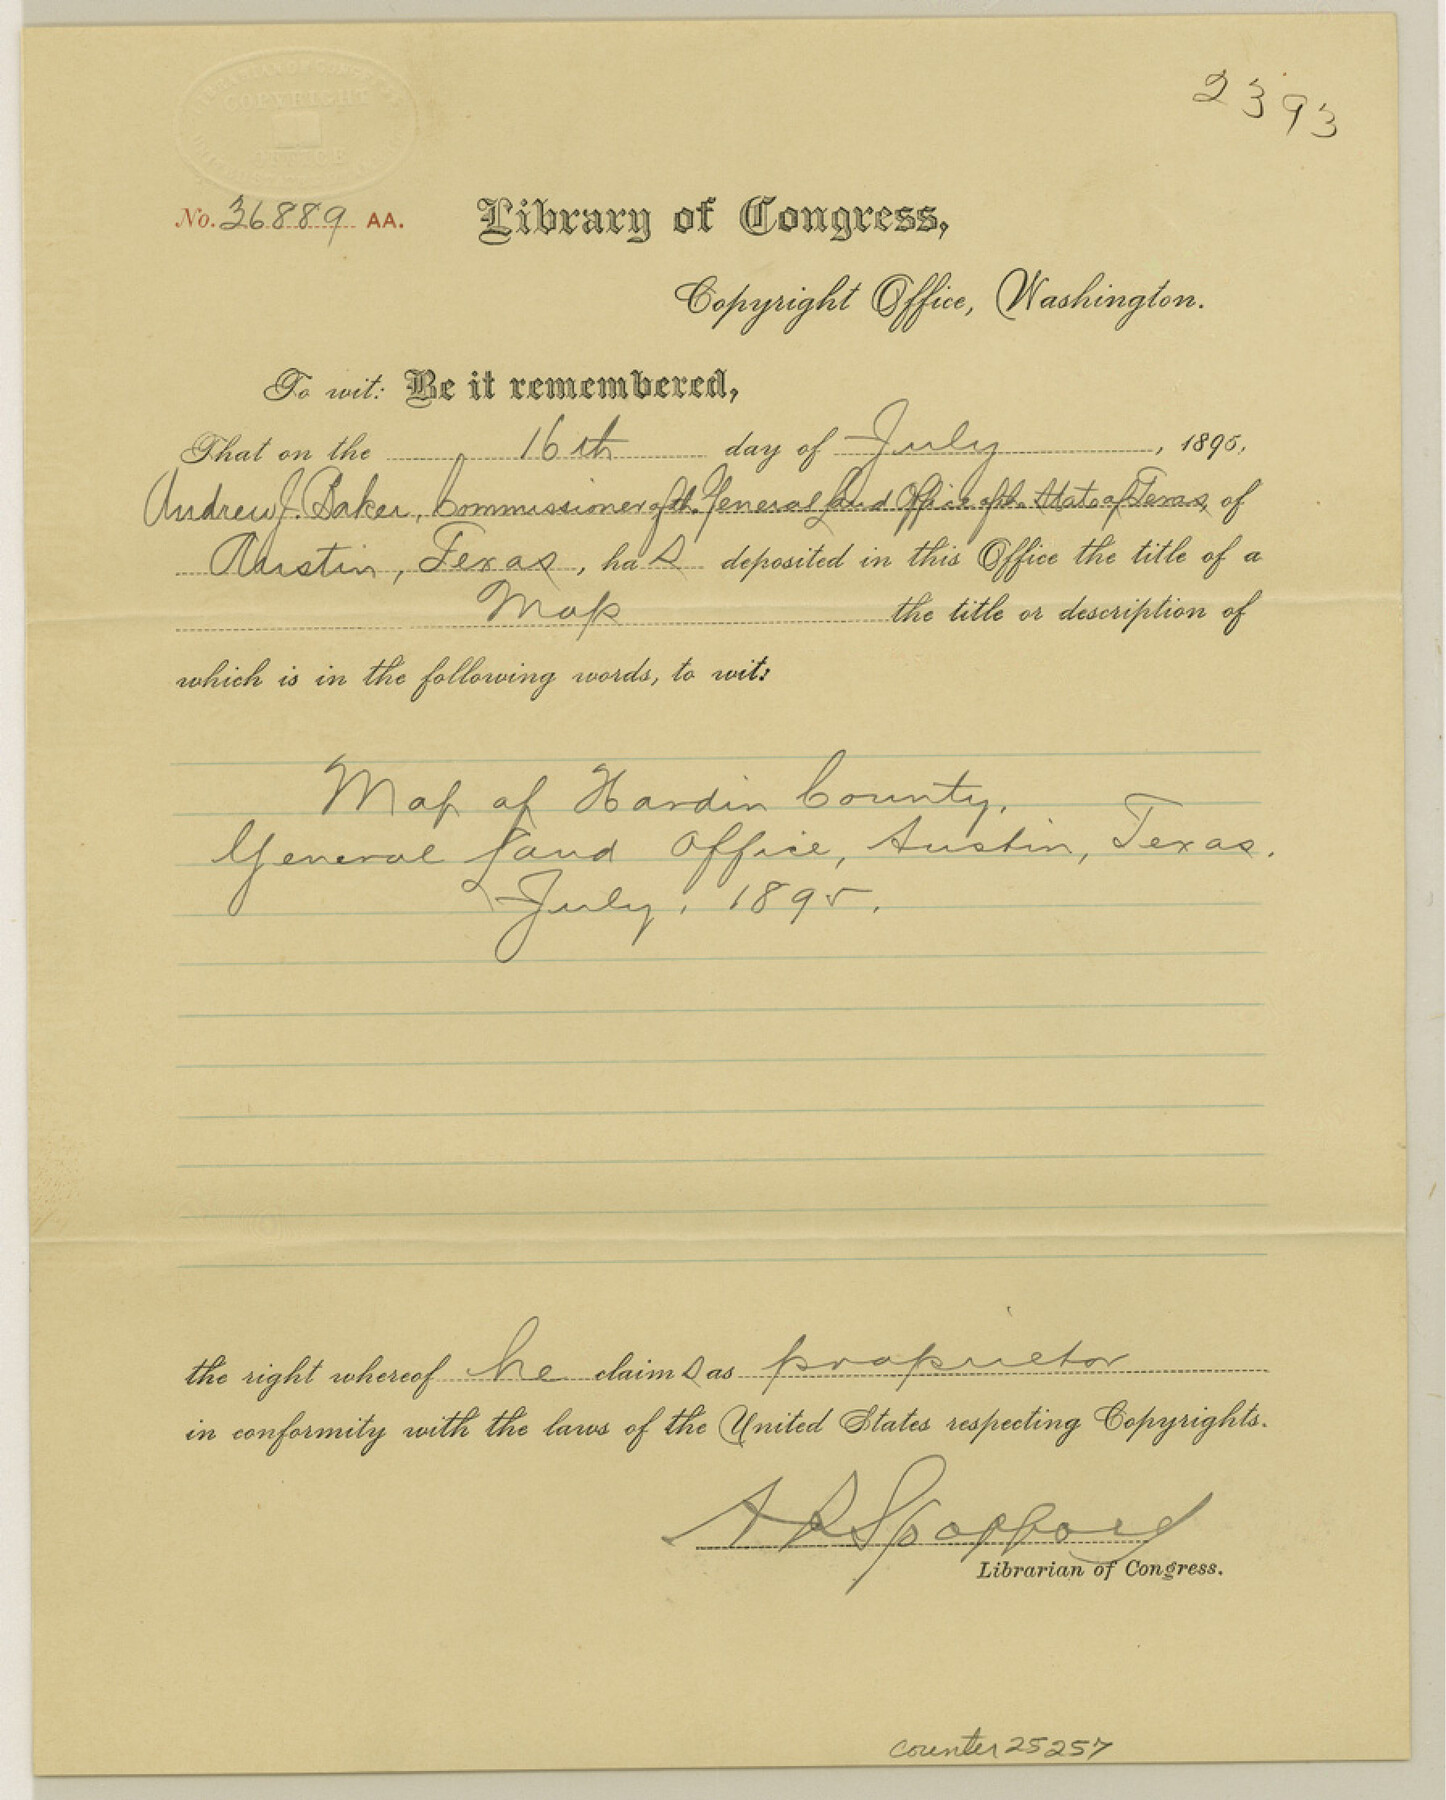 2393
LIBRARIAN OF CONGRESS
COPYRIGHT
OFFICE
No. 36889 AA.
Library of Congress,
Copyright Office, Washington.
To wit: Be it remembered,
That on the 16th day of July, 1895,
Andrew J. Baker, Commissioner of the General Land Office of the State of Texas, of
Austin, Texas, has deposited in this Office the title of a
Map the title or description of
which is in the following words, to wit:
Map of Hardin County,
General Land Office, Austin, Texas.
July, 1895.
the right whereof he claims as proprietor
in conformity with the laws of the United States respecting Copyrights.
A R Spofford
Librarian of Congress.
counter 25257